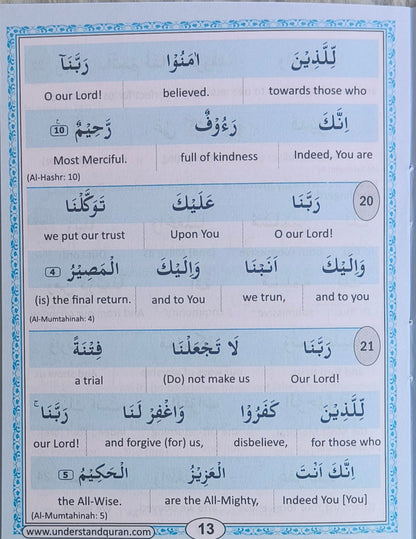 لِّلَّذِيْنَ اٰمَنُوْا رَبَّنَآ
towards those who believed. O our Lord!
اِنَّكَ رَءُوْفٌ رَّحِيْمٌ 10
Indeed, You are full of kindness Most Merciful.
(Al-Hashr: 10)
20 رَبَّنَا عَلَيْكَ تَوَكَّلْنَا
O our Lord! Upon You we put our trust
وَاِلَيْكَ اَنَبْنَا وَاِلَيْكَ الْمَصِيْرُ 4
and to you we trun, and to You (is) the final return.
(Al-Mumtahinah: 4)
21 رَبَّنَا لَا تَجْعَلْنَا فِتْنَةً
Our Lord! (Do) not make us a trial
لِّلَّذِيْنَ كَفَرُوْا وَاغْفِرْ لَنَا رَبَّنَا ۚ
for those who disbelieve, and forgive (for) us, our Lord!
اِنَّكَ اَنْتَ الْعَزِيْزُ الْحَكِيْمُ 5
Indeed You [You] are the All-Mighty, the All-Wise.
(Al-Mumtahinah: 5)
www.understandquran.com 13